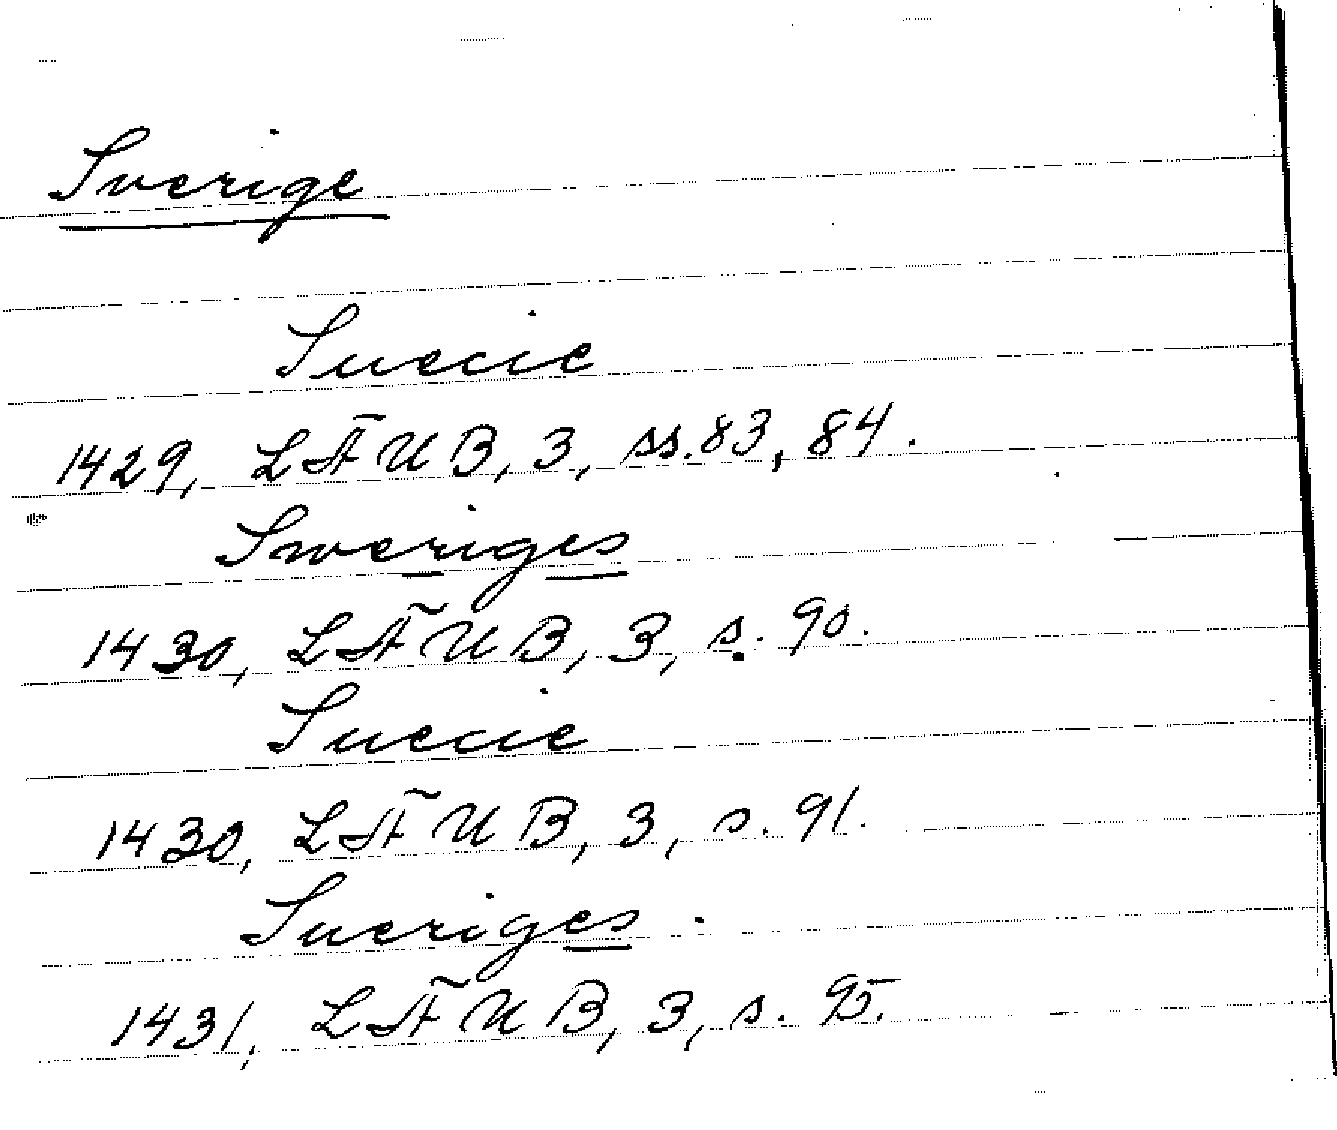 Sverige
Suecie
1429, LFUB, 3, ss. 83, 84.
Sweriges
1430, LFUB, 3, s. 90.
Suecie
1430, LFUB, 3, s. 91.
Sueriges
1431, LFUB, 3, s. 95.